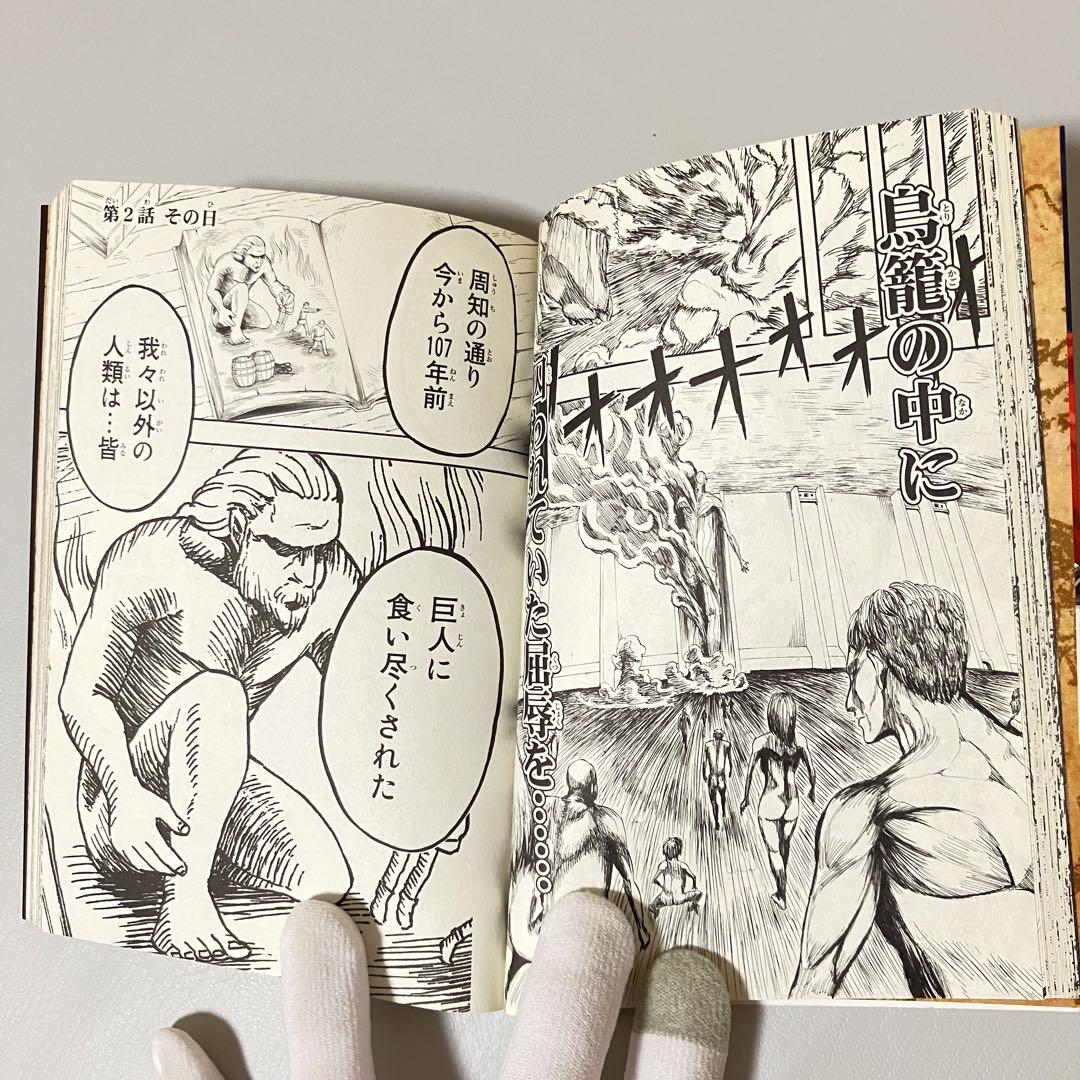 鳥籠の中に
囚われていた屈辱を……
オオオオオオ
第2話 その日
周知の通り
今から107年前
我々以外の
人類は…皆
巨人に
食い尽くされた